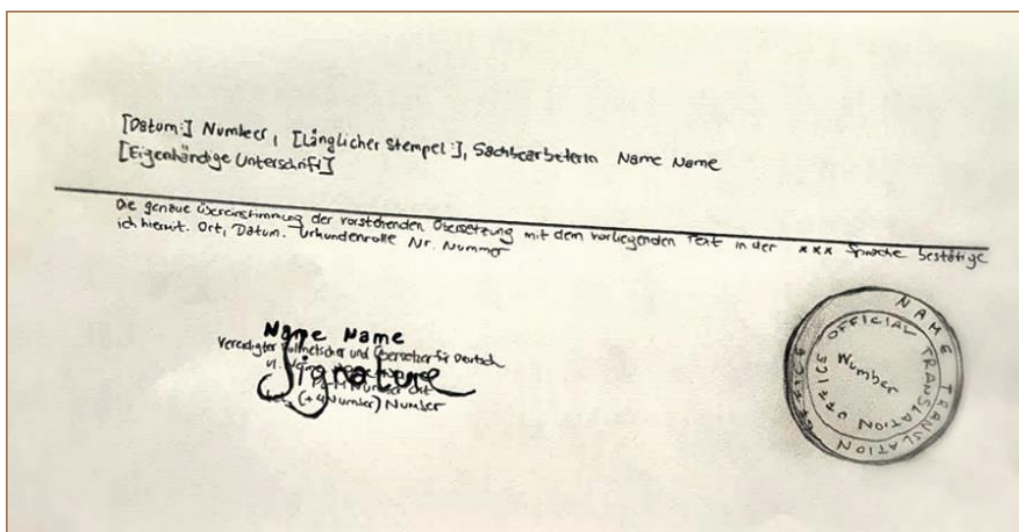 [Datum:] Number, [Länglicher Stempel:], Sachbearbeterin Name Name
[Eigenhändige Unterschrift]
Die genaue Übereinstimmung der vorstehenden Übersetzung mit dem vorliegenden Text in der xxx Sprache bestätige
ich hiermit. Ort, Datum. Urkundenrolle Nr. Nummer
Name Name
Vereidigter Dolmetscher und Übersetzer für Deutsch
ul.
Signature
(+4Number) Number
NAME TRANSLATION OFFICE
OFFICIAL TRANSLATION OFFICE
Number